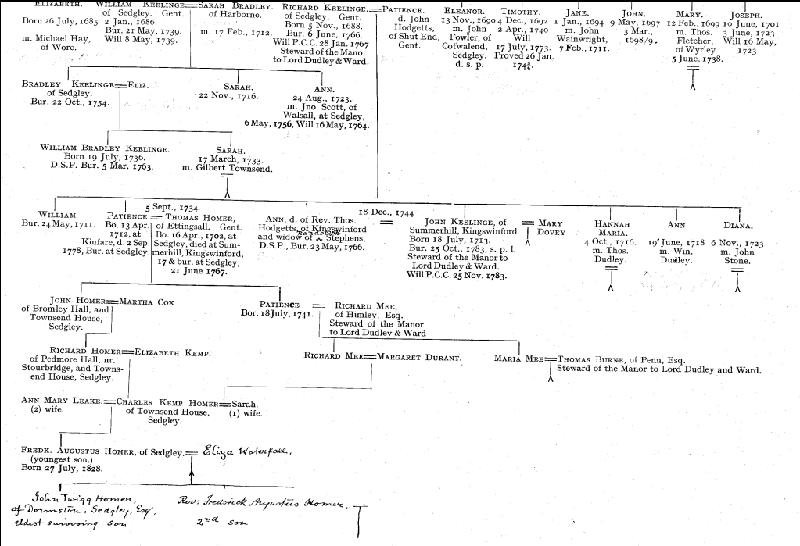 ELIZABETH.
Born 26 July, 1683
m. Michael Hay,
of Worc.
WILLIAM KEELINGE=SARAH BRADLEY,
of Sedgley, Gent. of Harborne.
2 Jan., 1686
Bur. 21 May, 1739. m 17 Feb., 1712.
Will 8 May, 1739.
RICHARD KEELINGE.=PATIENCE.
of Sedgley, Gent.
Born 5 Nov., 1688.
Bur. 6 June, 1766
Will P.C.C. 28 Jan. 1767
Steward of the Manor
to Lord Dudley & Ward.
d. John
Hodgetts,
of Shut End,
Gent.
ELEANOR.
13 Nov., 1690
m. John
Fowler, of
Cotwalend,
Sedgley.
d. s. p.
TIMOTHY.
4 Dec., 1692
2 Apr., 1740
Will
17 July, 1773.
Proved 26 Jan.
JANE.
1 Jan., 1694
m. John
Wainwright,
7 Feb., 1711.
JOHN.
9 May, 1697
3 Mar.,
1698/9.
MARY.
12 Feb., 1699
m. Thos.
Fletcher,
of Wyrley
5 June, 1738.
JOSEPH.
10 June, 1701
June, 1723
Will 16 May,
1723
BRADLEY KEELINGE=ELIZ.
of Sedgley.
Bur. 22 Oct., 1754.
SARAH.
22 Nov., 1716.
ANN.
24 Aug., 1723.
m. Jno. Scott, of
Walsall, at Sedgley.
6 May, 1756, Will 16 May, 1764.
WILLIAM BRADLEY KEELINGE.
Born 19 July, 1736.
D.S.P. Bur. 5 Mar. 1763.
SARAH.
17 March, 1733.
m. Gilbert Townsend.
WILLIAM
Bur. 24 May, 1711.
5 Sept., 1734
PATIENCE = THOMAS HOMER,
Bo. 13 Apr. of Ettingsall, Gent.
1712, at Bo. 16 Apr., 1702, at
Kinfare, d. 2 Sep Sedgley, died at Sum-
1778, Bur. at Sedgley merhill, Kingswinford,
17 & bur. at Sedgley.
21 June 1767.
18 Dec., 1744
ANN, d. of Rev. Thos.
Hodgetts, of Kingswinford
and widow of Stephens.
D.S.P., Bur. 23 May, 1766.
=
JOHN KEELINGE, of
Summerhill, Kingswinford
Born 18 July, 1713.
Bur. 25 Oct., 1783. s. p. l.
Steward of the Manor to
Lord Dudley & Ward.
Will P.C.C. 25 Nov. 1783.
= MARY
DOVEY
HANNAH
MARIA.
4 Oct., 1716.
m. Thos.
Dudley
ANN
19 June, 1718
m. Wm.
Dudley.
DIANA.
6 Nov., 1723
m. John
Stone.
JOHN HOMER=MARTHA COX
of Bromley Hall, and
Townsend House,
Sedgley.
PATIENCE = RICHARD MEE
Bor. 18 July, 1741. of Himley, Esq.
Steward of the Manor
to Lord Dudley & Ward
RICHARD HOMER=ELIZABETH KEMP.
of Podmore Hall, nr.
Stourbridge, and Towns-
end House, Sedgley.
RICHARD MEE=MARGARET DURANT.
MARIA MEE=THOMAS BURNE, of Penn, Esq.
Steward of the Manor to Lord Dudley and Ward.
ANN MARY LEAKE.=CHARLES KEMP HOMER=Sarah.
(2) wife. of Townsend House. (1) wife.
Sedgley.
FREDK. AUGUSTUS HOMER, of Sedgley.= Eliza Waterfall.
(youngest son.)
Born 27 July, 1828.
John Twigg Homer,
of Dormston, Sedgley, Esq.
eldest surviving son
Rev. Frederick Augustus Homer.
2nd son